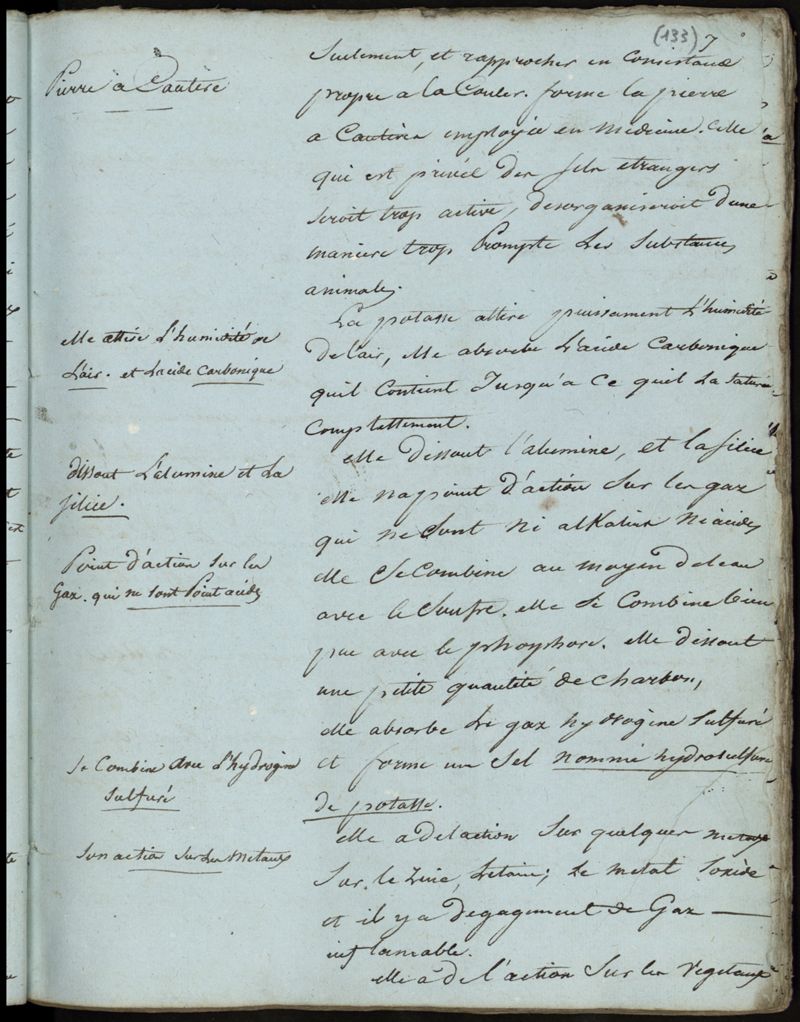 (133) 7
Pierre a Cautère
Seulement, et rapprocher en Consistance
propre a la Couler. forme la pierre
a Cautere employée en Medecine. Celle
qui est privée des sels etrangers
seroit trop active, desorganiseroit d'une
maniere trop Prompte Les Substances
animales.
elle attire L'humidité de
L'air. et L'acide Carbonique
La potasse attire puissament L'humidité
De l'air, elle absorbe L'acide Carbonique
quil Contient Jusqu'a Ce quil La Sature
Complettement.
dissout L'alumine et La
silice.
elle Dissout l'alumine, et la silice
elle na point D'action Sur les gaz
qui ne Sont Ni alkalins Ni acides
Point d'action Sur les
Gaz. qui ne Sont Point acides
elle Se Combine au moyen de leau
avec le Soufre. elle Se Combine bien
peu avec le phosphore. elle dissout
une petite quantité de charbon,
elle absorbe Le gaz hydrogène Sulfuré
Se Combine avec L'hydrogène
Sulfuré
et forme un Sel nommé hydrosulfure
de potasse.
Son action Sur Les Metaux
elle a de laction Sur quelques metaux
Sur le Zinc, Letain; Le metal Soxide
et il y a Degagement de Gaz —
inflamable.
elle a de l'action Sur les Vegetaux